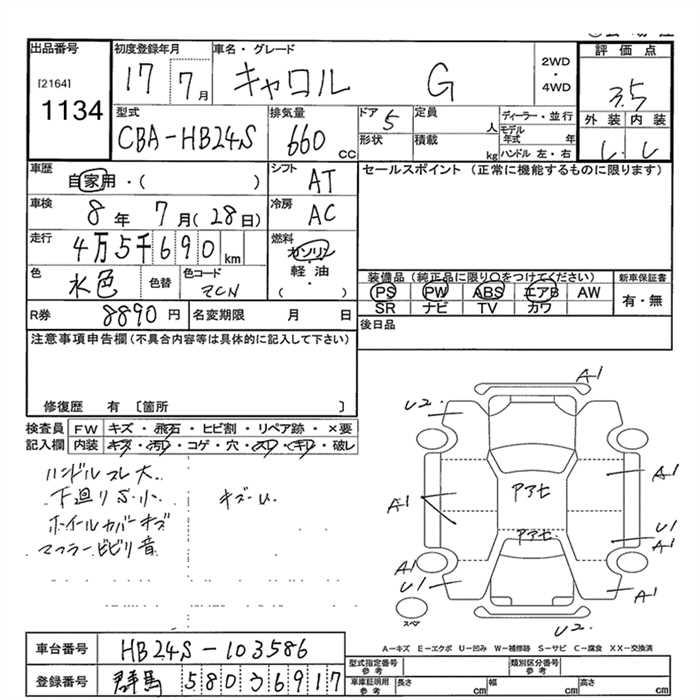 出品番号
[2164]
1134
初度登録年月
17 7月
車名・グレード
キャロル G
2WD
・
4WD
評価点
3.5
外装 内装
型式
CBA-HB24S
排気量
660 cc
ドア 5
形状
定員 人
積載 kg
ディーラー・並行
モデル年式 年
ハンドル 左・右
車歴
自家用・( )
シフト
AT
セールスポイント (正常に機能するものに限ります)
車検
8年 7月(28日)
冷房
AC
走行
4万5千690km
燃料
ガソリン
軽油
・
( )
色
水色
色替
色コード
ZCN
装備品 (純正品に限り○をつけてください)
新車保証書
PS PW ABS エアB AW
SR ナビ TV カワ
有・無
R券
8890円
名変期限 月 日
後日品
注意事項申告欄 (不具合内容等は具体的に記入して下さい)
修復歴 有 〔箇所 〕
検査員記入欄
FW キズ・飛石・ヒビ割・リペア跡・×要
内装 キズ・汚レ・コゲ・穴・スレ・キレ・破レ
ハンドルスレ大.
下廻りS.小. キズ・U.
ホイールカバーキズ
マフラービビリ音
A1
U2.
A1
A1
アアセ
アアセ
U1
A1
U1
A1
スペア
U2.
A=キズ E=エクボ U=凹み W=補修跡 S=サビ C=腐食 XX=交換済
車台番号
HB24S-103586
登録番号
群馬 580 3 6917
型式指定番号
参考
類別区分番号
参考
車庫証明用
参考
長さ cm
幅 cm
高さ cm